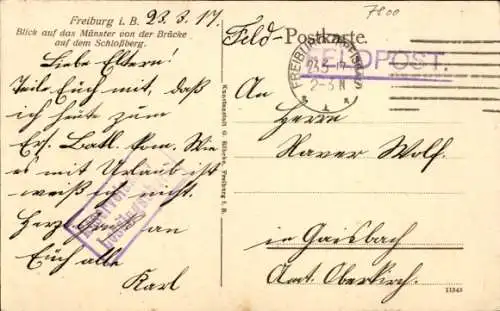 7800
Freiburg i. B. 23.3.17.
Blick auf das Münster von der Brücke
auf dem Schloßberg.
Liebe Eltern!
Teile Euch mit, daß
ich heute zum
Ers. Batl. kom. Wie
es mit Urlaub ist
weiß ich nicht.
Herz. Gruß an
Euch alle
Karl
Kunstverlag G. Röbcke, Freiburg i. B.
Feld-Postkarte.
FELDPOST.
FREIBURG
23.3.17
2-3 N
An
Herrn
Xaver Wolf.
in Gaisbach
Amt. Oberkirch.
11343